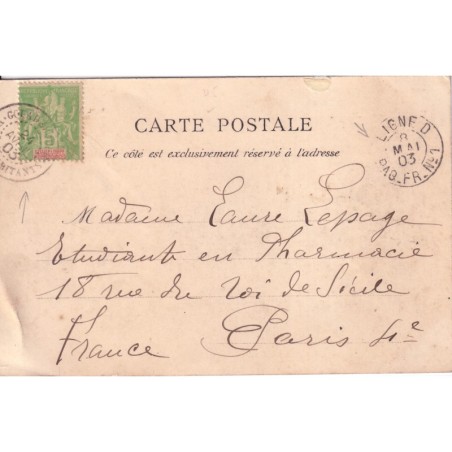 CARTE POSTALE
Ce côté est exclusivement réservé à l'adresse
LIGNE D
8
MAI
03
PAQ. FR. Nº1
5
03
Madame Laure Lepage
Etudiante en Pharmacie
18 rue du roi de Sicile
France Paris 4e